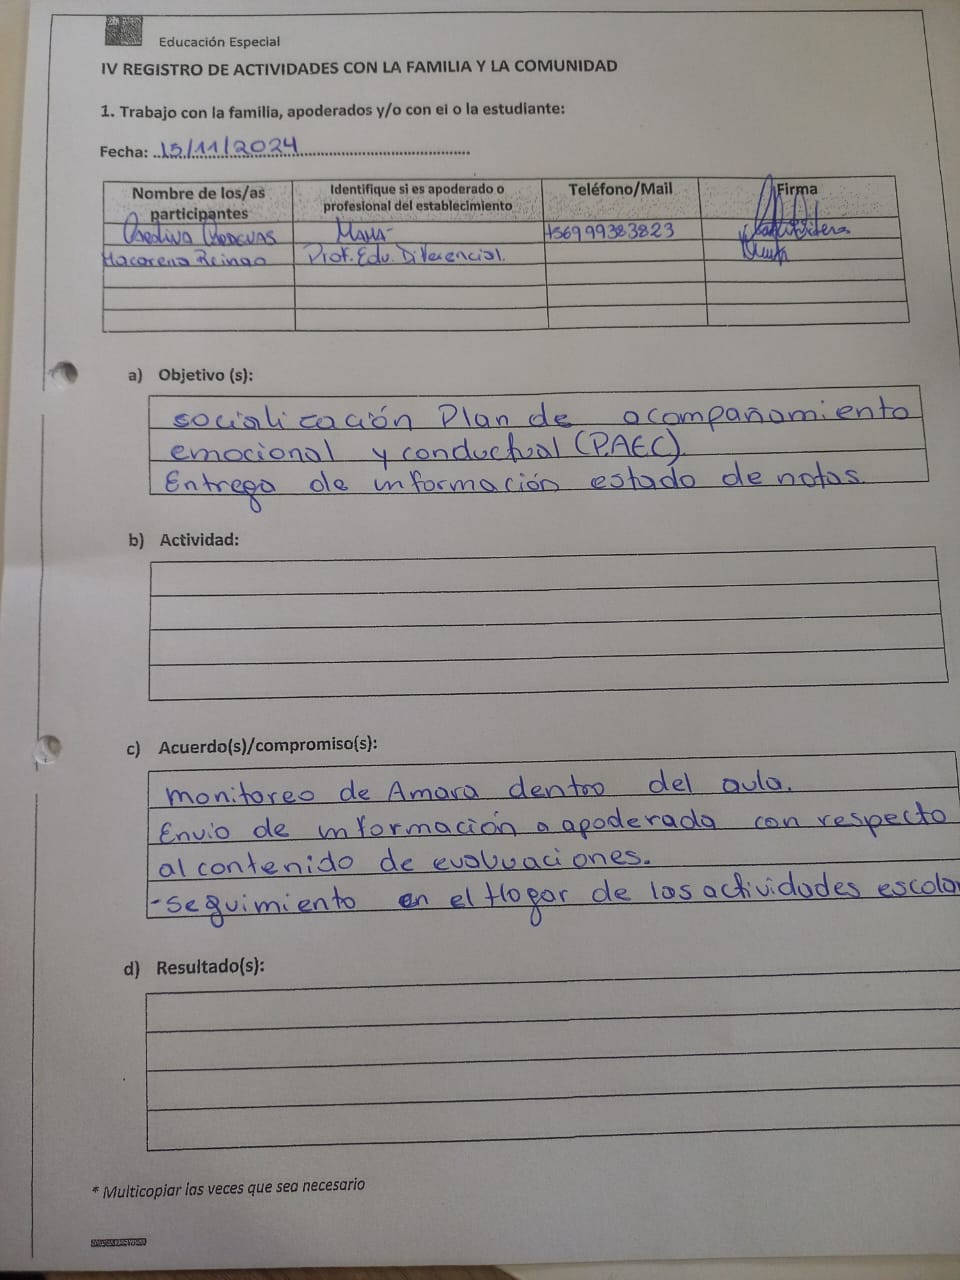 Educación Especial
IV REGISTRO DE ACTIVIDADES CON LA FAMILIA Y LA COMUNIDAD
1. Trabajo con la familia, apoderados y/o con el o la estudiante:
Fecha: 15/11/2024
Nombre de los/as participantes
Identifique si es apoderado o profesional del establecimiento
Teléfono/Mail
Firma
Carolina
Mamá
+56999383823
Macarena
Prof. Edu. Diferencial.
a) Objetivo (s):
socialización Plan de acompañamiento
emocional y conductual (P.AEC).
Entrega de información estado de notas.
b) Actividad:
c) Acuerdo(s)/compromiso(s):
monitoreo de Amara dentro del aula.
Envío de información a apoderada con respecto
al contenido de evaluaciones.
-seguimiento en el Hogar de las actividades
d) Resultado(s):
* Multicopiar las veces que sea necesario